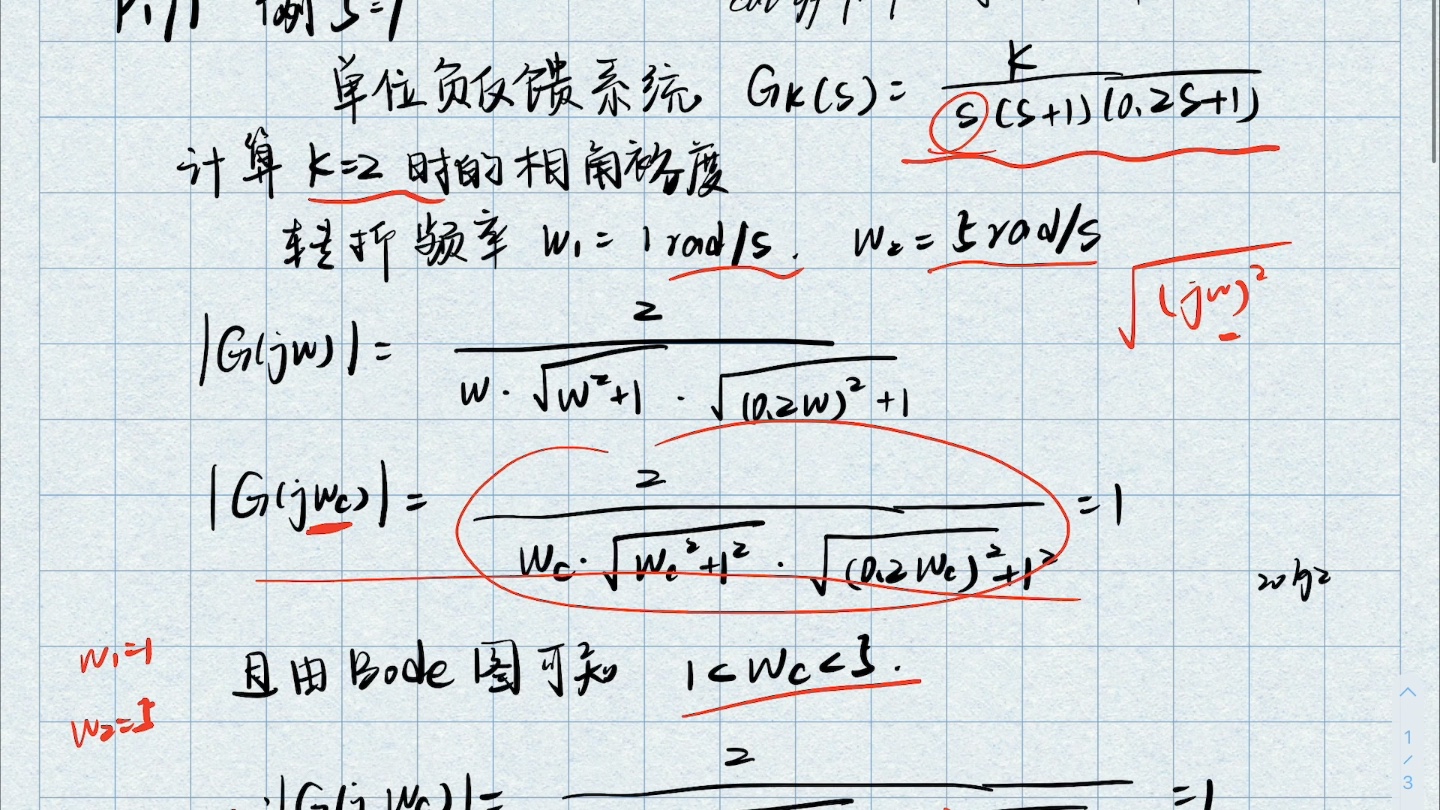 例5-1
单位负反馈系统, GK(s) = K / s(s+1)(0.2s+1)
计算 K=2 时的相角裕度
转折频率 W₁ = 1 rad/s. W₂ = 5 rad/s
√(jw)²
|G(jw)| = 2 / w·√w²+1 · √(0.2w)²+1
|G(jwc)| = 2 / wc·√wc²+1² · √(0.2wc)²+1² = 1
20lg2
w₁=1
且由Bode图可知 1<wc<5.
w₂=5
|G(jwc)| = 2 =1
1/3